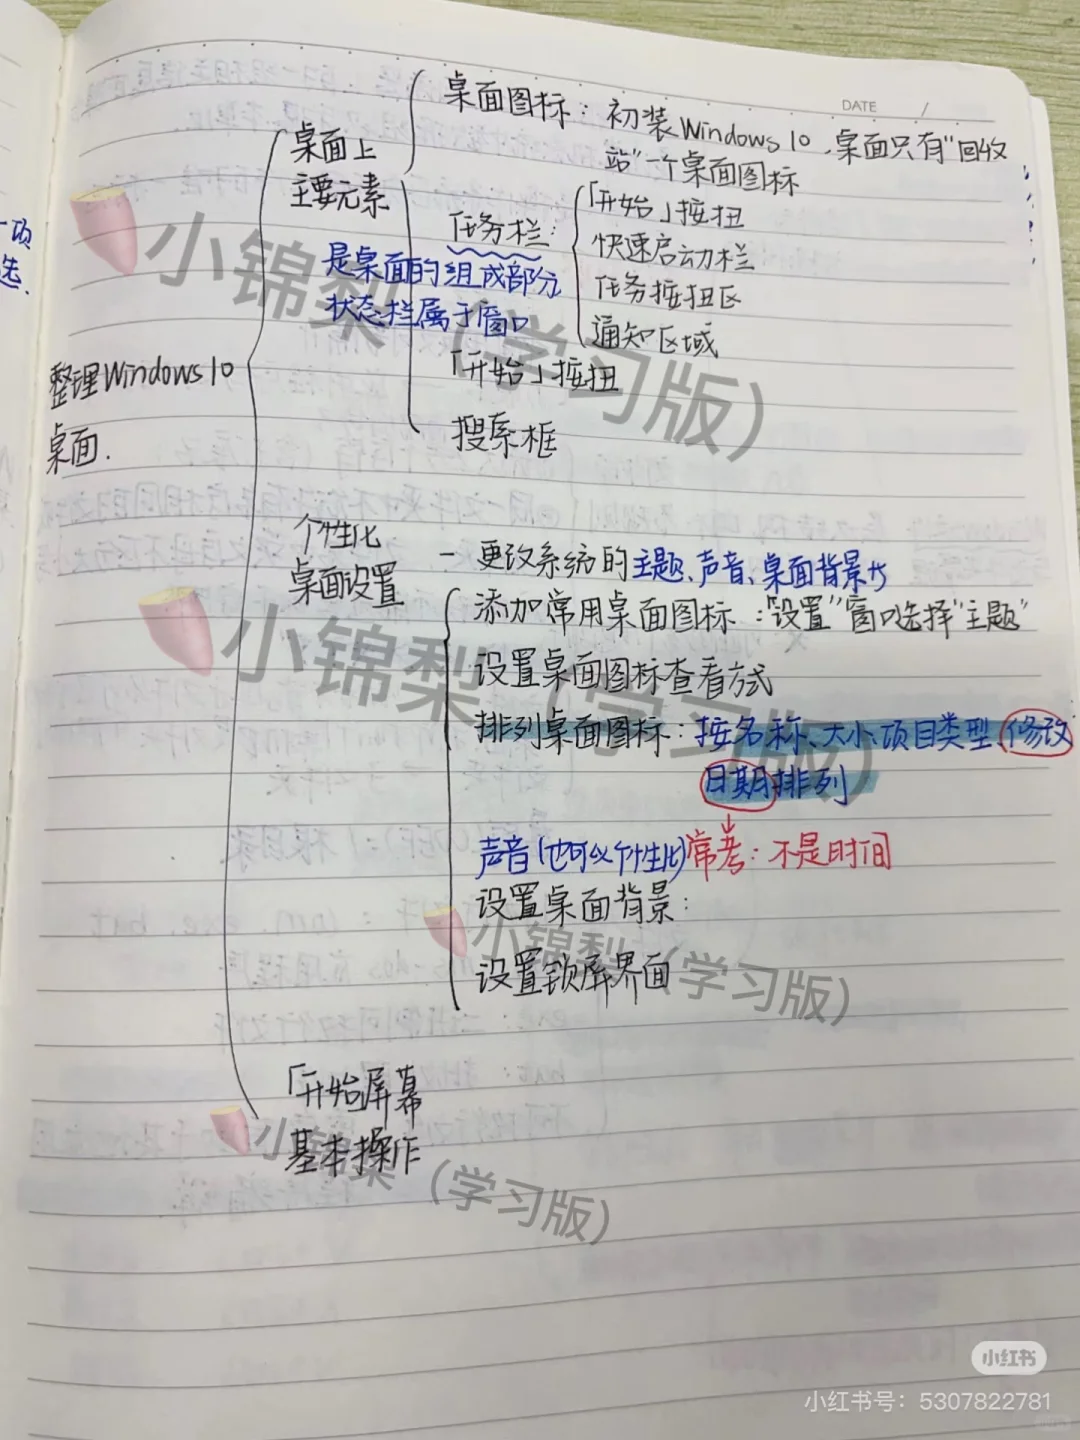 DATE /
桌面图标：初装Windows 10，桌面只有"回收
站"一个桌面图标
桌面上
主要元素
任务栏：
「开始」按扭
快速启动栏
任务按扭区
通知区域
是桌面的组成部分
状态拦属于窗口
「开始」按扭
搜索框
整理Windows 10
桌面.
个性化
桌面设置
- 更改系统的主题、声音、桌面背景
添加常用桌面图标："设置"窗口选择"主题"
设置桌面图标查看方式
排列桌面图标：按名称、大小、项目类型、修改
日期排列
声音(也可以个性化)常考：不是时间
设置桌面背景：
设置锁屏界面
「开始屏幕
基本操作
项
选.
小锦梨（学习版）
小锦梨（学习版）
小锦梨（学习版）
小锦梨（学习版）
小红书
小红书号：5307822781